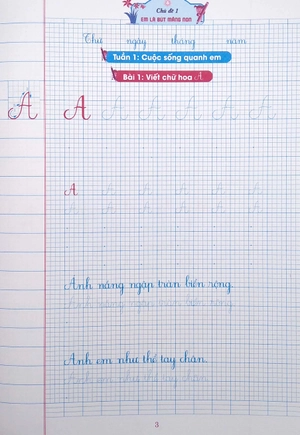 Chủ đề 1
EM LÀ BÚT MĂNG NON
Thứ ngày tháng năm
Tuần 1: Cuộc sống quanh em
Bài 1: Viết chữ hoa A
A A A A A A A
A A A A A A
A A A A A A
Ánh nắng ngập tràn biển rộng.
Ánh nắng ngập tràn biển rộng.
Anh em như thể tay chân.
Anh em như thể tay chân.
3